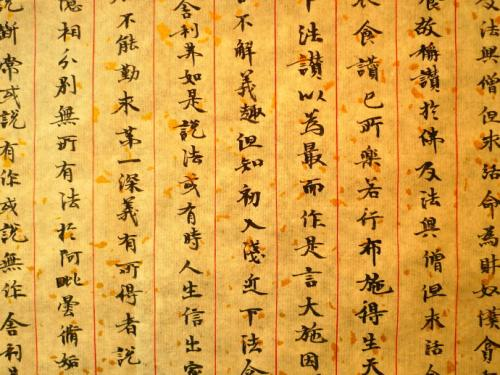 及法興僧但求活命為財奴溪會
食故稱讚於佛及法興僧但求活命
衣食讚已所樂若行布施得生天
下法讚以為最而作是言大施因
不解義趣但知初入淺近下法舍
舍利弗如是說法或有時人生信出家
不能勤求第一深義有所得者說
憶相分別無所有法於阿毗曇脩妬
說斷常或說有作或說無作舍利弗